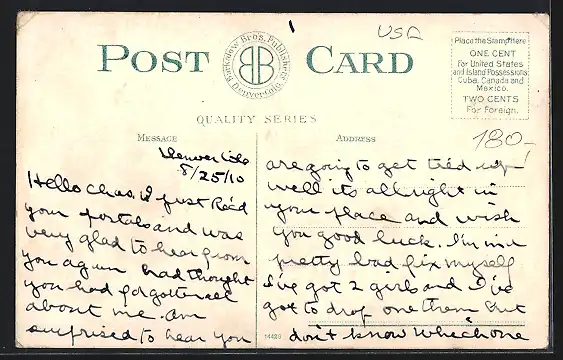 USA
POST CARD
Barkalow Bros. Publishers
Denver Colo.
QUALITY SERIES
Place the Stamp Here
ONE CENT
For United States
and Island Possessions
Cuba, Canada and
Mexico.
TWO CENTS
For Foreign.
180-
MESSAGE
Denver Colo
8/25/10
Hello Chas. I just Rec'd
your postals and was
very glad to hear from
you again had thought
you had forgotten all
about me. am
surprised to hear you
ADDRESS
are going to get tied up
well its all right in
your place and wish
you good luck. I'm in a
pretty bad fix myself
I've got 2 girls and I've
got to drop one them but
don't know which one